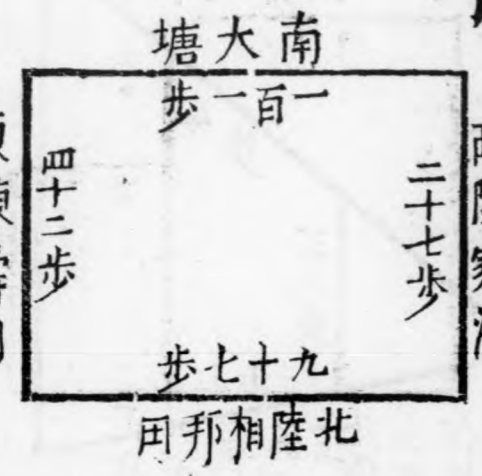 南大塘
一百一歩
二十七歩
四十二歩
九十七歩
北陸相邦田